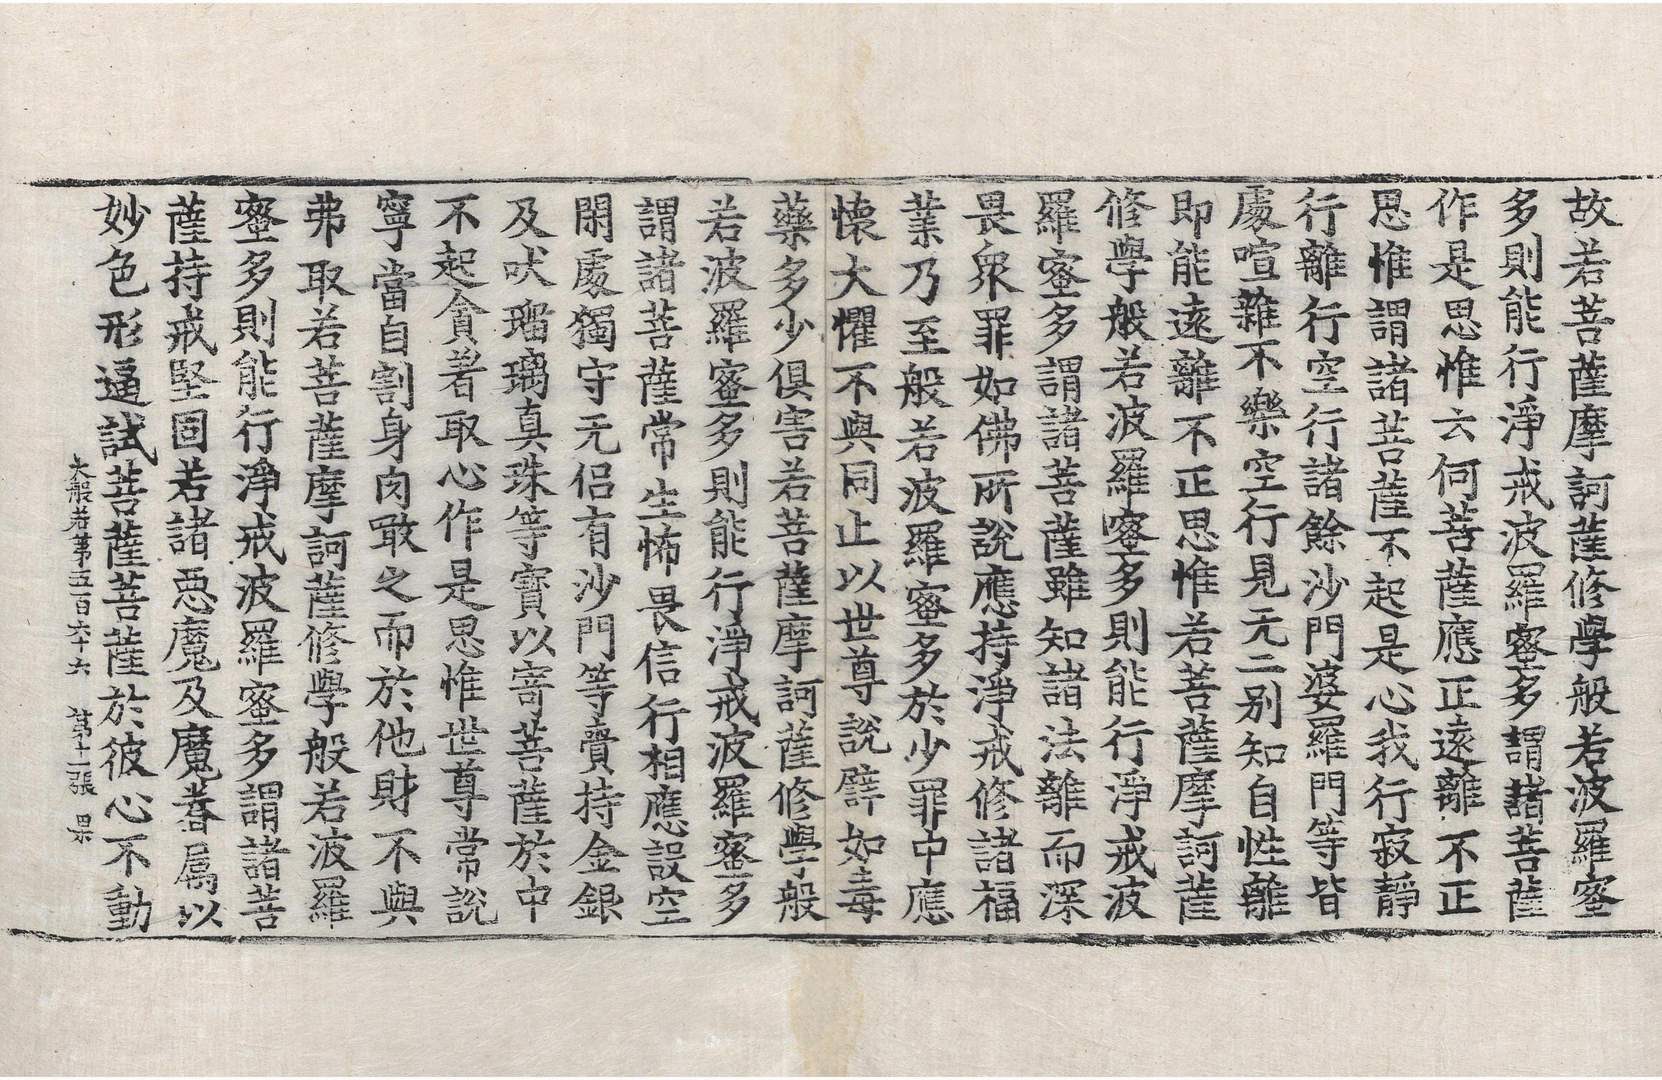 故若菩薩摩訶薩修學般若波羅蜜
多則能行淨戒波羅蜜多謂諸菩薩
作是思惟云何菩薩應正遠離不正
思惟謂諸菩薩不起是心我行寂靜
行離行空行諸餘沙門婆羅門等皆
處喧雜不樂空行見无二別知自性離
即能遠離不正思惟若菩薩摩訶薩
修學般若波羅蜜多則能行淨戒波
羅蜜多謂諸菩薩雖知諸法離而深
畏衆罪如佛所說應持淨戒修諸福
業乃至般若波羅蜜多於少罪中應
懷大懼不與同止以世尊說譬如毒
藥多少俱害若菩薩摩訶薩修學般
若波羅蜜多則能行淨戒波羅蜜多
謂諸菩薩常生怖畏信行相應設空
閑處獨守无侶有沙門等賷持金銀
及吠瑠璃真珠等寶以寄菩薩於中
不起貪著取心作是思惟世尊常說
寧當自割身肉敢之而於他財不與
弗取若菩薩摩訶薩修學般若波羅
蜜多則能行淨戒波羅蜜多謂諸菩
薩持戒堅固若諸惡魔及魔眷屬以
妙色形逼試菩薩菩薩於彼心不動
大般若第五百六十六 第十二張 果